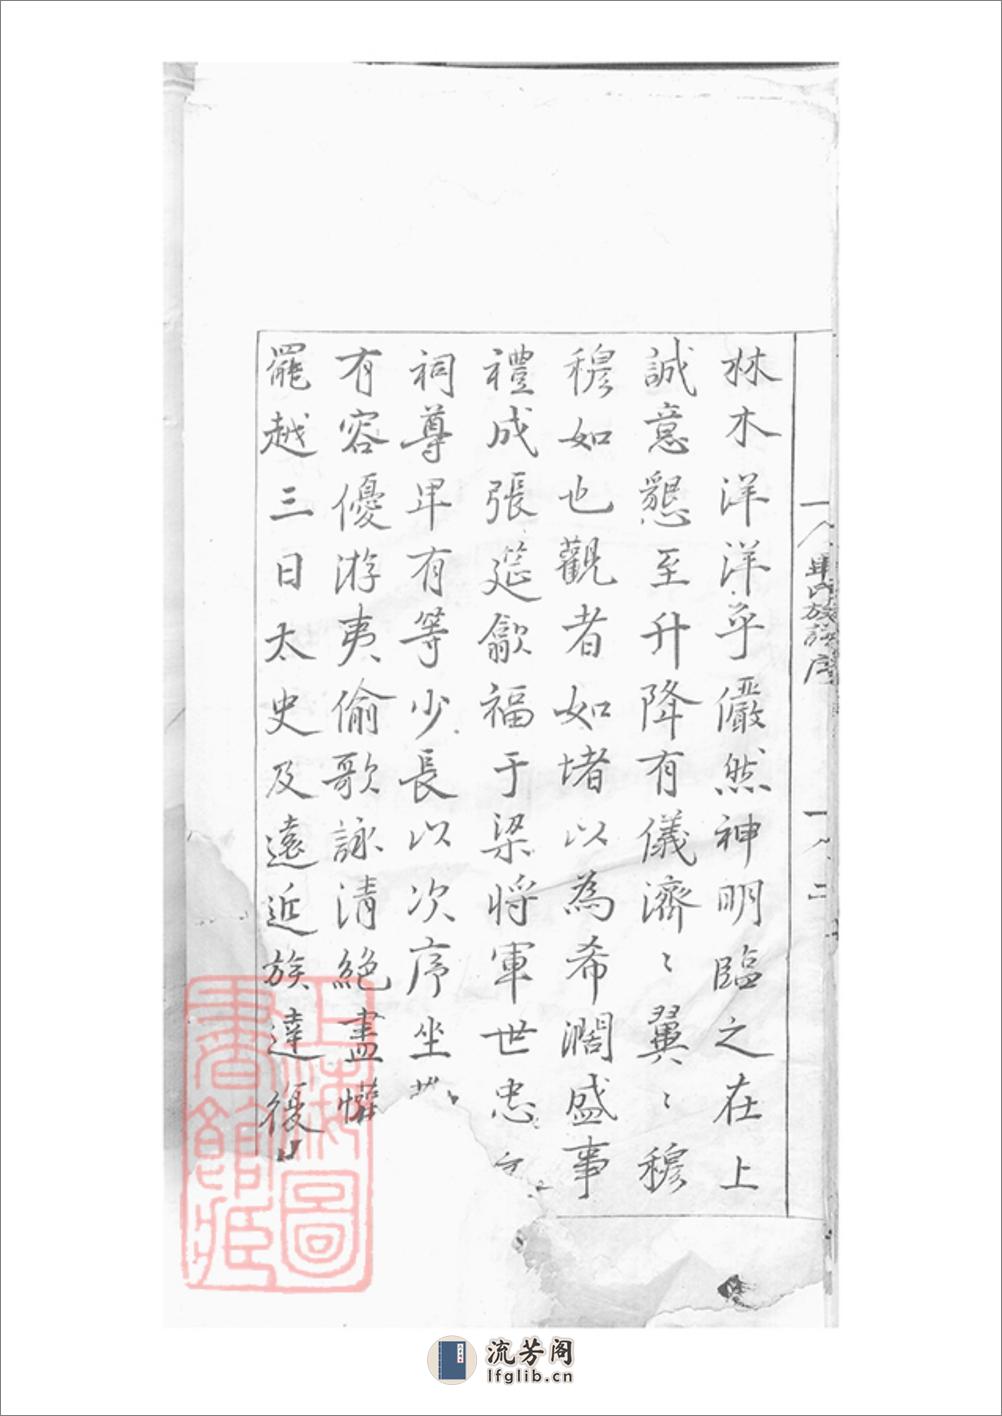 林木洋洋乎儼然神明臨之在上
誠意懇至升降有儀濟〻翼〻穆
穆如也觀者如堵以為希濶盛事
禮成張筵歙福于梁将軍世忠
祠尊卑有等少長以次序坐
有容優游夷愉歌詠清絕盡懽
罷越三日太史及遠近族達復
族譜序
上海圖書館藏
流芳阁
lfglib.cn